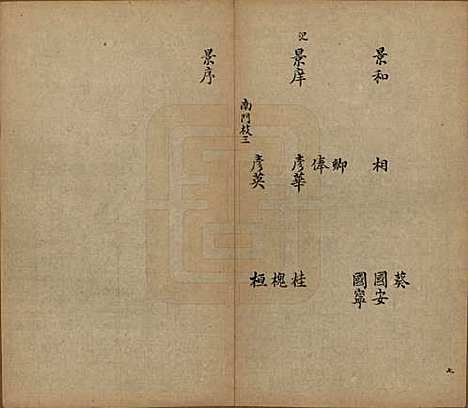 景和
相
葵
國安
國寧
景庠
卿
俸
彥華
彥英
桂
槐
桓
南門枝三
景序
七